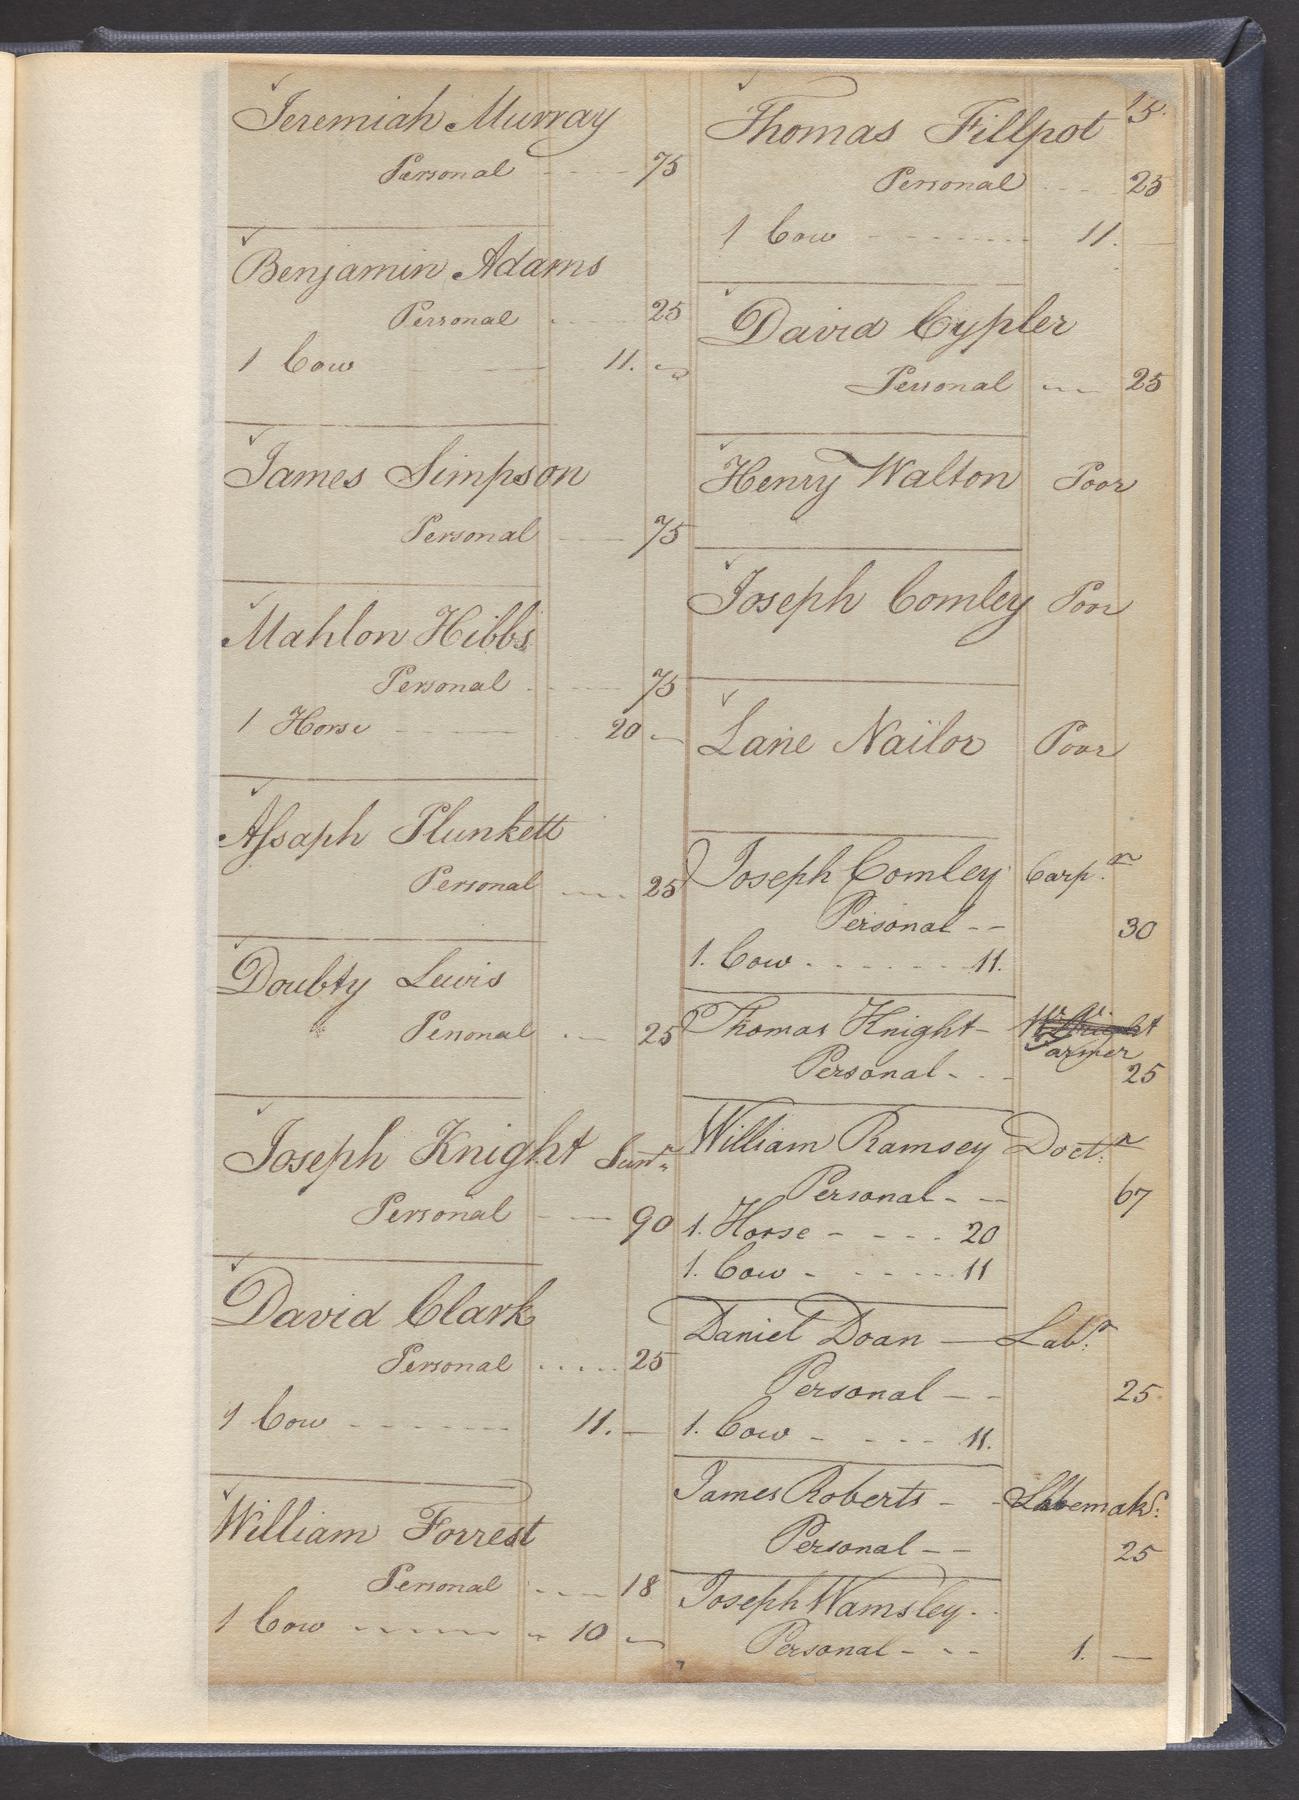 Jeremiah Murray
Personal - - - - 75
Benjamin Adams
Personal . - - - 25
1 Cow - - - 11. -
James Simpson
Personal - - - 75
Mahlon Hibbs
Personal - - - - 75
1 Horse - - - - 20 -
Aſsaph Plunkett
Personal - - - . 25
Doubty Lewis
Personal . - - 25
Joseph Knight Sunr.
Personal - - - 90
David Clark
Personal . . . . . 25
1 Cow - - - - - - - 11. -
William Forrest
Personal - - - - 18
1 Cow - - - - - - 10 -
15.
Thomas Fillpot
Personal - - - - 25
1 Cow - - - - - - - 11. -
David Cypler
Personal - - - 25
Henry Walton Poor
Joseph Comley Poor
Lane Nailor Poor
Joseph Comley Carp.n
Personal - - 30
1. Cow - - - - - - - 11.
Thomas Knight -
Farmer
Personal - - - 25
William Ramsey Doct.r
Personal - - - 67
1. Horse - - - - - 20
1. Cow - - - - - - 11
Daniel Doan — Lab.r
Personal - - 25
1. Cow - - - - - 11.
James Roberts - -
Personal - - 25
Joseph Wamsley - -
Personal - - - - 1. —